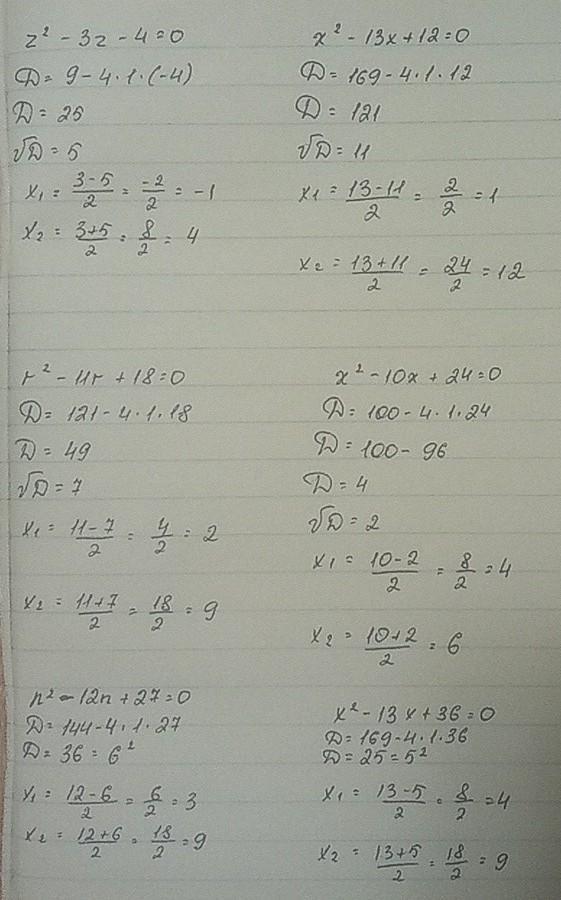 z² - 3z - 4 = 0
D = 9 - 4·1·(-4)
D = 25
√D = 5
x₁ = (3-5)/2 = -2/2 = -1
x₂ = (3+5)/2 = 8/2 = 4
x² - 13x + 12 = 0
D = 169 - 4·1·12
D = 121
√D = 11
x₁ = (13-11)/2 = 2/2 = 1
x₂ = (13+11)/2 = 24/2 = 12
r² - 11r + 18 = 0
D = 121 - 4·1·18
D = 49
√D = 7
x₁ = (11-7)/2 = 4/2 = 2
x₂ = (11+7)/2 = 18/2 = 9
x² - 10x + 24 = 0
D = 100 - 4·1·24
D = 100 - 96
D = 4
√D = 2
x₁ = (10-2)/2 = 8/2 = 4
x₂ = (10+2)/2 = 6
n² - 12n + 27 = 0
D = 144 - 4·1·27
D = 36 = 6²
x₁ = (12-6)/2 = 6/2 = 3
x₂ = (12+6)/2 = 18/2 = 9
x² - 13x + 36 = 0
D = 169 - 4·1·36
D = 25 = 5²
x₁ = (13-5)/2 = 8/2 = 4
x₂ = (13+5)/2 = 18/2 = 9